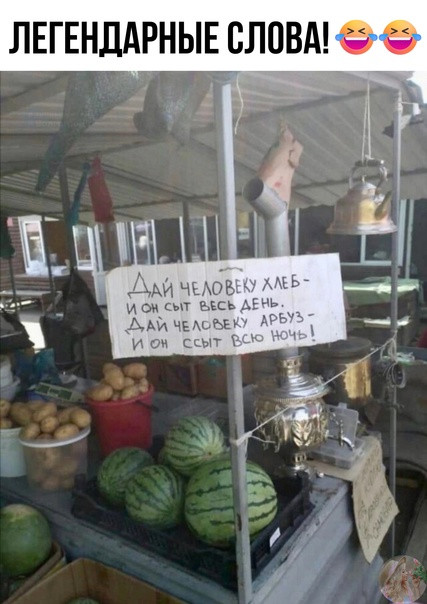 ЛЕГЕНДАРНЫЕ СЛОВА! 😆😆
ДАЙ ЧЕЛОВЕКУ ХЛЕБ -
И ОН СЫТ ВЕСЬ ДЕНЬ.
ДАЙ ЧЕЛОВЕКУ АРБУЗ -
И ОН ССЫТ ВСЮ НОЧЬ!